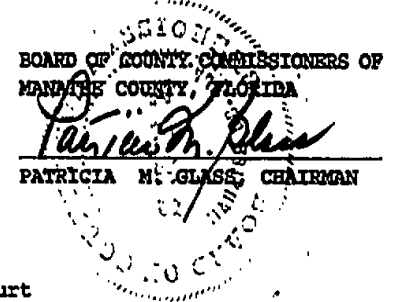 BOARD OF COUNTY COMMISSIONERS OF
MANATEE COUNTY, FLORIDA
Patricia M. Glass
PATRICIA M. GLASS, CHAIRMAN
urt